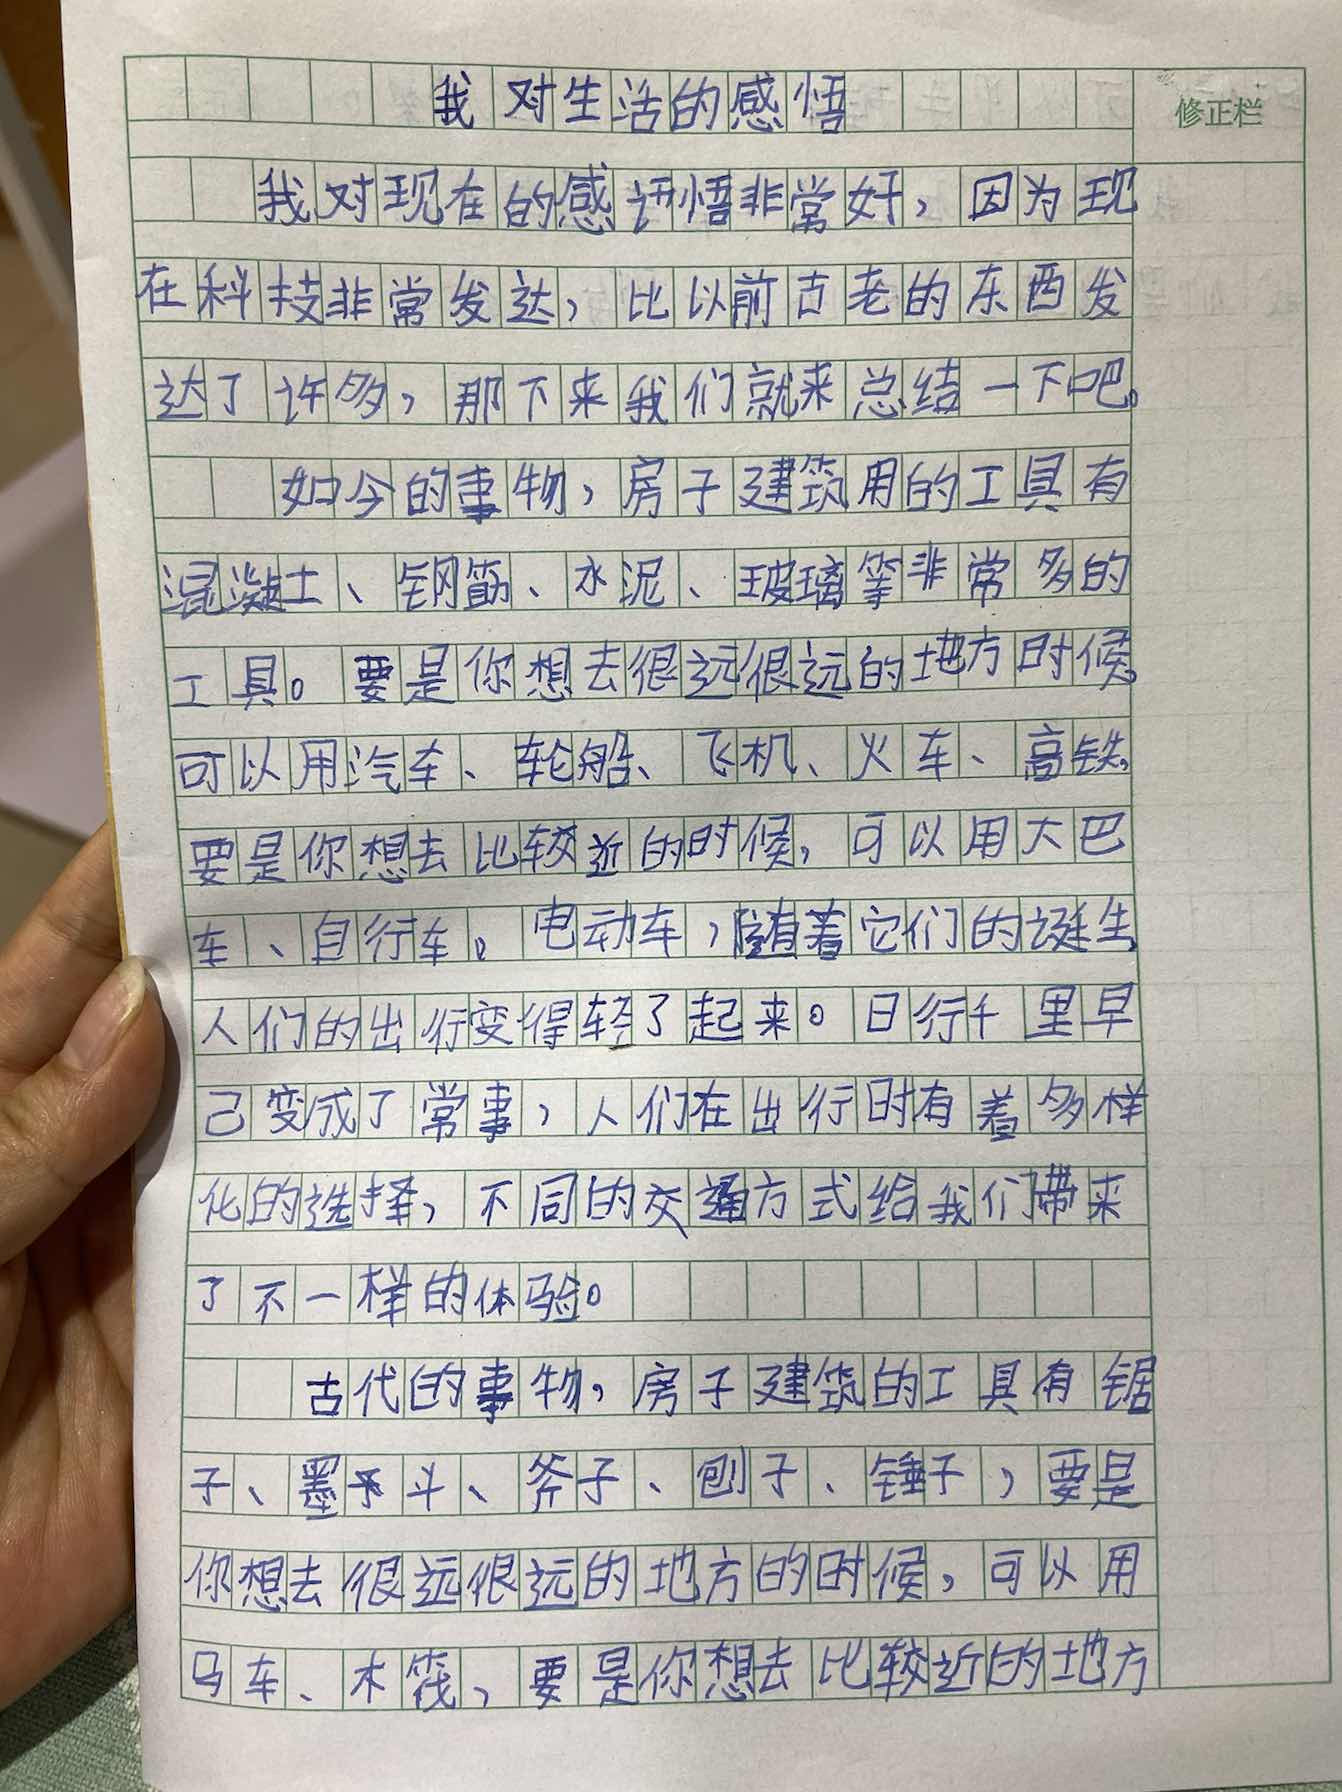 我对生活的感悟
修正栏
我对现在的感悟非常好，因为现
在科技非常发达，比以前古老的东西发
达了许多，那下来我们就来总结一下吧。
如今的事物，房子建筑用的工具有
混凝土、钢筋、水泥、玻璃等非常多的
工具。要是你想去很远很远的地方时候，
可以用汽车、轮船、飞机、火车、高铁，
要是你想去比较近的时候，可以用大巴
车、自行车。电动车，随着它们的诞生
人们的出行变得轻了起来。日行千里早
己变成了常事，人们在出行时有着多样
化的选择，不同的交通方式给我们带来
了不一样的体验。
古代的事物，房子建筑的工具有锯
子、墨斗、斧子、刨子、锤子，要是
你想去很远很远的地方的时候，可以用
马车、木筏，要是你想去比较近的地方